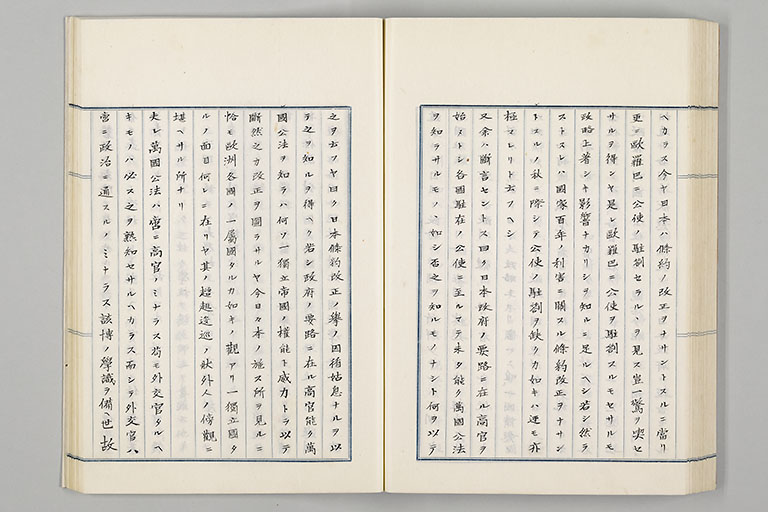 ヘカラス今ヤ日本ハ條約ノ改正ヲナサントスルニ當リ
更ニ歐羅巴ニ公使ノ駐劄セラルヽヲ見ス豈一驚ヲ喫セ
サルヲ得ンヤ是レ歐羅巴ニ公使ヲ駐劄スルモセサルモ
政略上著シキ影響ナカリシヲ知ルニ足ルヘシ若シ然ラ
ストスレハ國家百年ノ利害ニ關スル條約改正ヲナサン
トスルノ秋ニ際シテ公使ノ駐劄ヲ缺クカ如キハ迂モ亦
極マレリト云フヘシ
又余ハ斷言セントス曰ク日本政府ノ要路ニ在ル高官ヲ
始メトシ各國駐在ノ公使ニ至ルマテ未タ能ク萬國公法
ヲ知ラサルモノヽ如シ否之ヲ知ルモノナシト何ヲ以テ
之ヲ云フヤ曰ク日本條約改正ノ擧ノ因循姑息ナルヲ以
テ之ヲ知ルヲ得ヘク若シ政府ノ要路ニ在ル高官能ク萬
國公法ヲ知ラハ何ソ一獨立帝國ノ權能ト威力トヲ以テ
斷然之カ改正ヲ圖ラサルヤ今日々本ノ施ス所ヲ見ルニ
恰モ歐洲各國ノ一屬國タルカ如キノ觀アリ一獨立國タ
ルノ面目何レニ在リヤ其ノ趑趄逡巡ノ狀外人ノ傍觀ニ
堪ヘサル所ナリ
夫レ萬國公法ハ啻ニ高官ノミナラス苟モ外交官タルヘ
キモノハ必ス之ヲ熟知セサルヘカラス而シテ外交官ハ
啻ニ政治ニ通スルノミナラス該博ノ學識ヲ備ヘ世故